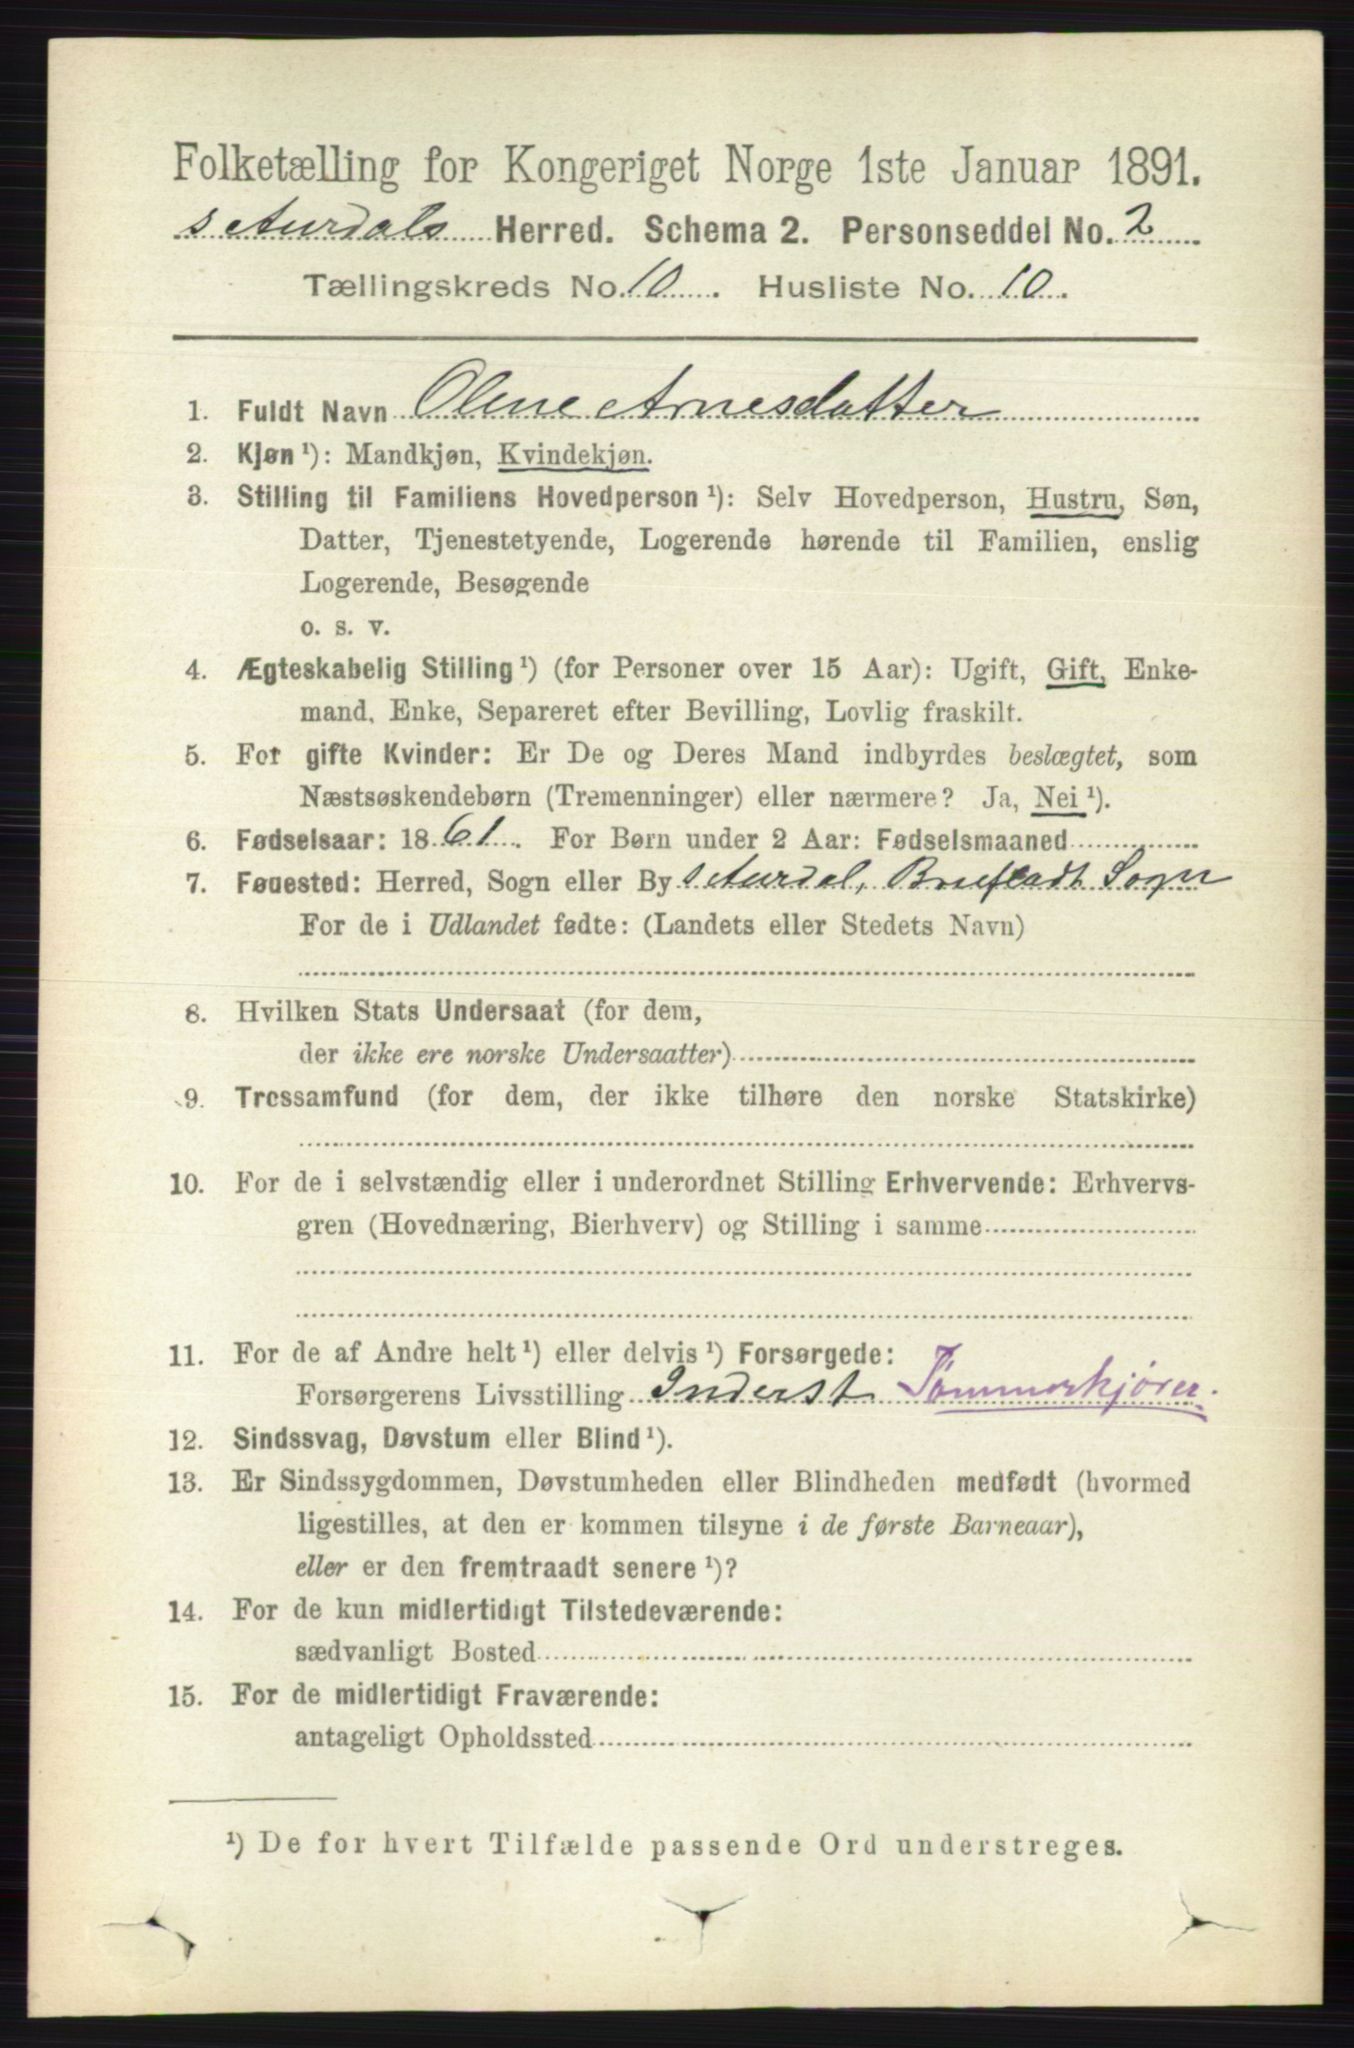 Folketælling for Kongeriget Norge 1ste Januar 1891.
s Aurdals Herred. Schema 2. Personseddel No. 2
Tællingskreds No. 10. Husliste No. 10.
1. Fuldt Navn Oline Arnesdatter
2. Kjøn ¹): Mandkjøn, Kvindekjøn.
3. Stilling til Familiens Hovedperson ¹): Selv Hovedperson, Hustru, Søn,
Datter, Tjenestetyende, Logerende hørende til Familien, enslig
Logerende, Besøgende
o. s. v.
4. Ægteskabelig Stilling ¹) (for Personer over 15 Aar): Ugift, Gift, Enke-
mand, Enke, Separeret efter Bevilling, Lovlig fraskilt.
5. For gifte Kvinder: Er De og Deres Mand indbyrdes beslægtet, som
Næstsøskendebørn (Tremenninger) eller nærmere? Ja, Nei ¹).
6. Fødselsaar: 1861. For Børn under 2 Aar: Fødselsmaaned
7. Føuested: Herred, Sogn eller By s Aurdal, Brufladt Sogn
For de i Udlandet fødte: (Landets eller Stedets Navn)
8. Hvilken Stats Undersaat (for dem,
der ikke ere norske Undersaatter)
9. Trossamfund (for dem, der ikke tilhøre den norske Statskirke)
10. For de i selvstændig eller i underordnet Stilling Erhvervende: Erhvervs-
gren (Hovednæring, Bierhverv) og Stilling i samme
11. For de af Andre helt ¹) eller delvis ¹) Forsørgede:
Forsørgerens Livsstilling Inderst Tømmerkjører.
12. Sindssvag, Døvstum eller Blind ¹).
13. Er Sindssygdommen, Døvstumheden eller Blindheden medfødt (hvormed
ligestilles, at den er kommen tilsyne i de første Barneaar),
eller er den fremtraadt senere ¹)?
14. For de kun midlertidigt Tilstedeværende:
sædvanligt Bosted
15. For de midlertidigt Fraværende:
antageligt Opholdssted
¹) De for hvert Tilfælde passende Ord understreges.